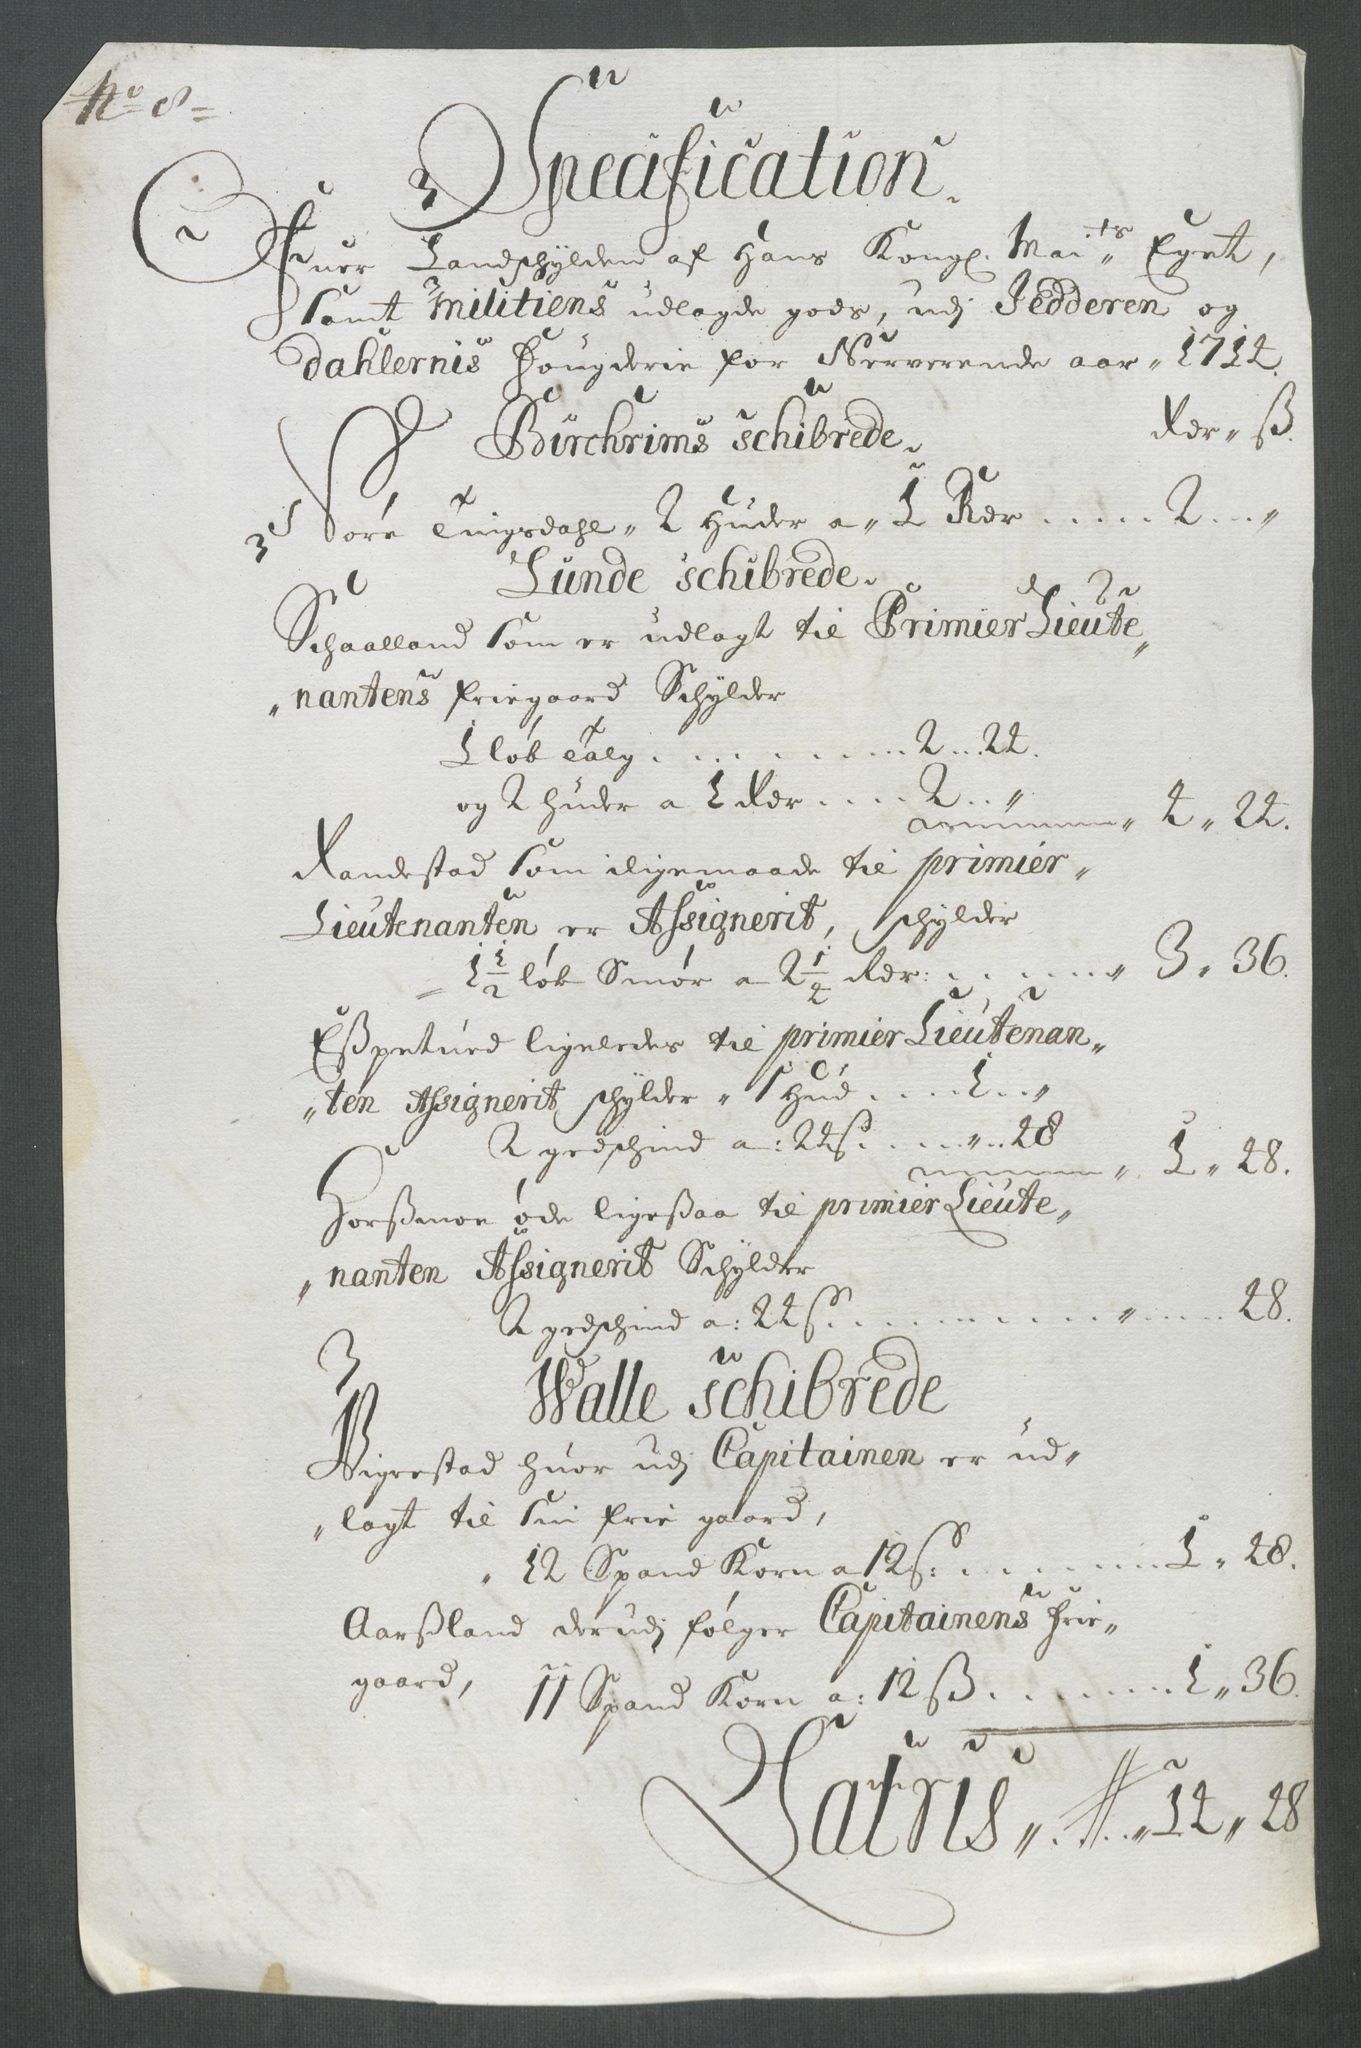 No 8
Specification
Ofuer Landschylden af Hans Kongl. Mai.ts Eget,
samt Militiens udlagde gods, udj Jedderen og
Dahlernis fougderie for Nerverende aar 1714.
Birchrims schibrede. Rdr ß
Sore Tingsdahl 2 Huder a 1 Rdr ..... 2 ... „
Lunde schibrede.
Schaalland som er udlagt til Primier Lieute„
„nantens friegaard Schylder
1 løb Talg . . . . . . . . . 2 ... 24.
og 2 huder a 1 Rdr .... 2 .. „
4 „ 24.
Randestad som iligemaade til primier„
Lieutenanten er Assignerit, schylder
1 1/2 løb Smør a 2 1/4 Rdr: . . . . . . „ 3 „ 36.
Eßpetued ligeledes til primier Lieutenan„
„ten Assignerit schylder „ 1 Hud .... 1 .. „
2 gedschind a: 24 s. . . . . „ .. 48
1 „ 48.
Forßmoe øde ligeßaa til primier Lieute„
„nanten Assignerit Schylder
2 gedschind a: 24 s. . . . . . . . . . „ ..... 48.
Walle schibrede
Vigrestad huor udj Capitainen er ud„
„lagt til sin frie gaard,
12 Spand Korn a 12 s: . . . . . . . 1 „ 48.
Aarßland der udj følger Capitainens frie„
gaard, 11 Spand Korn a: 12 ß. . . . . . . 1 „ 36.
Latris „ . . . „ 14 „ 48